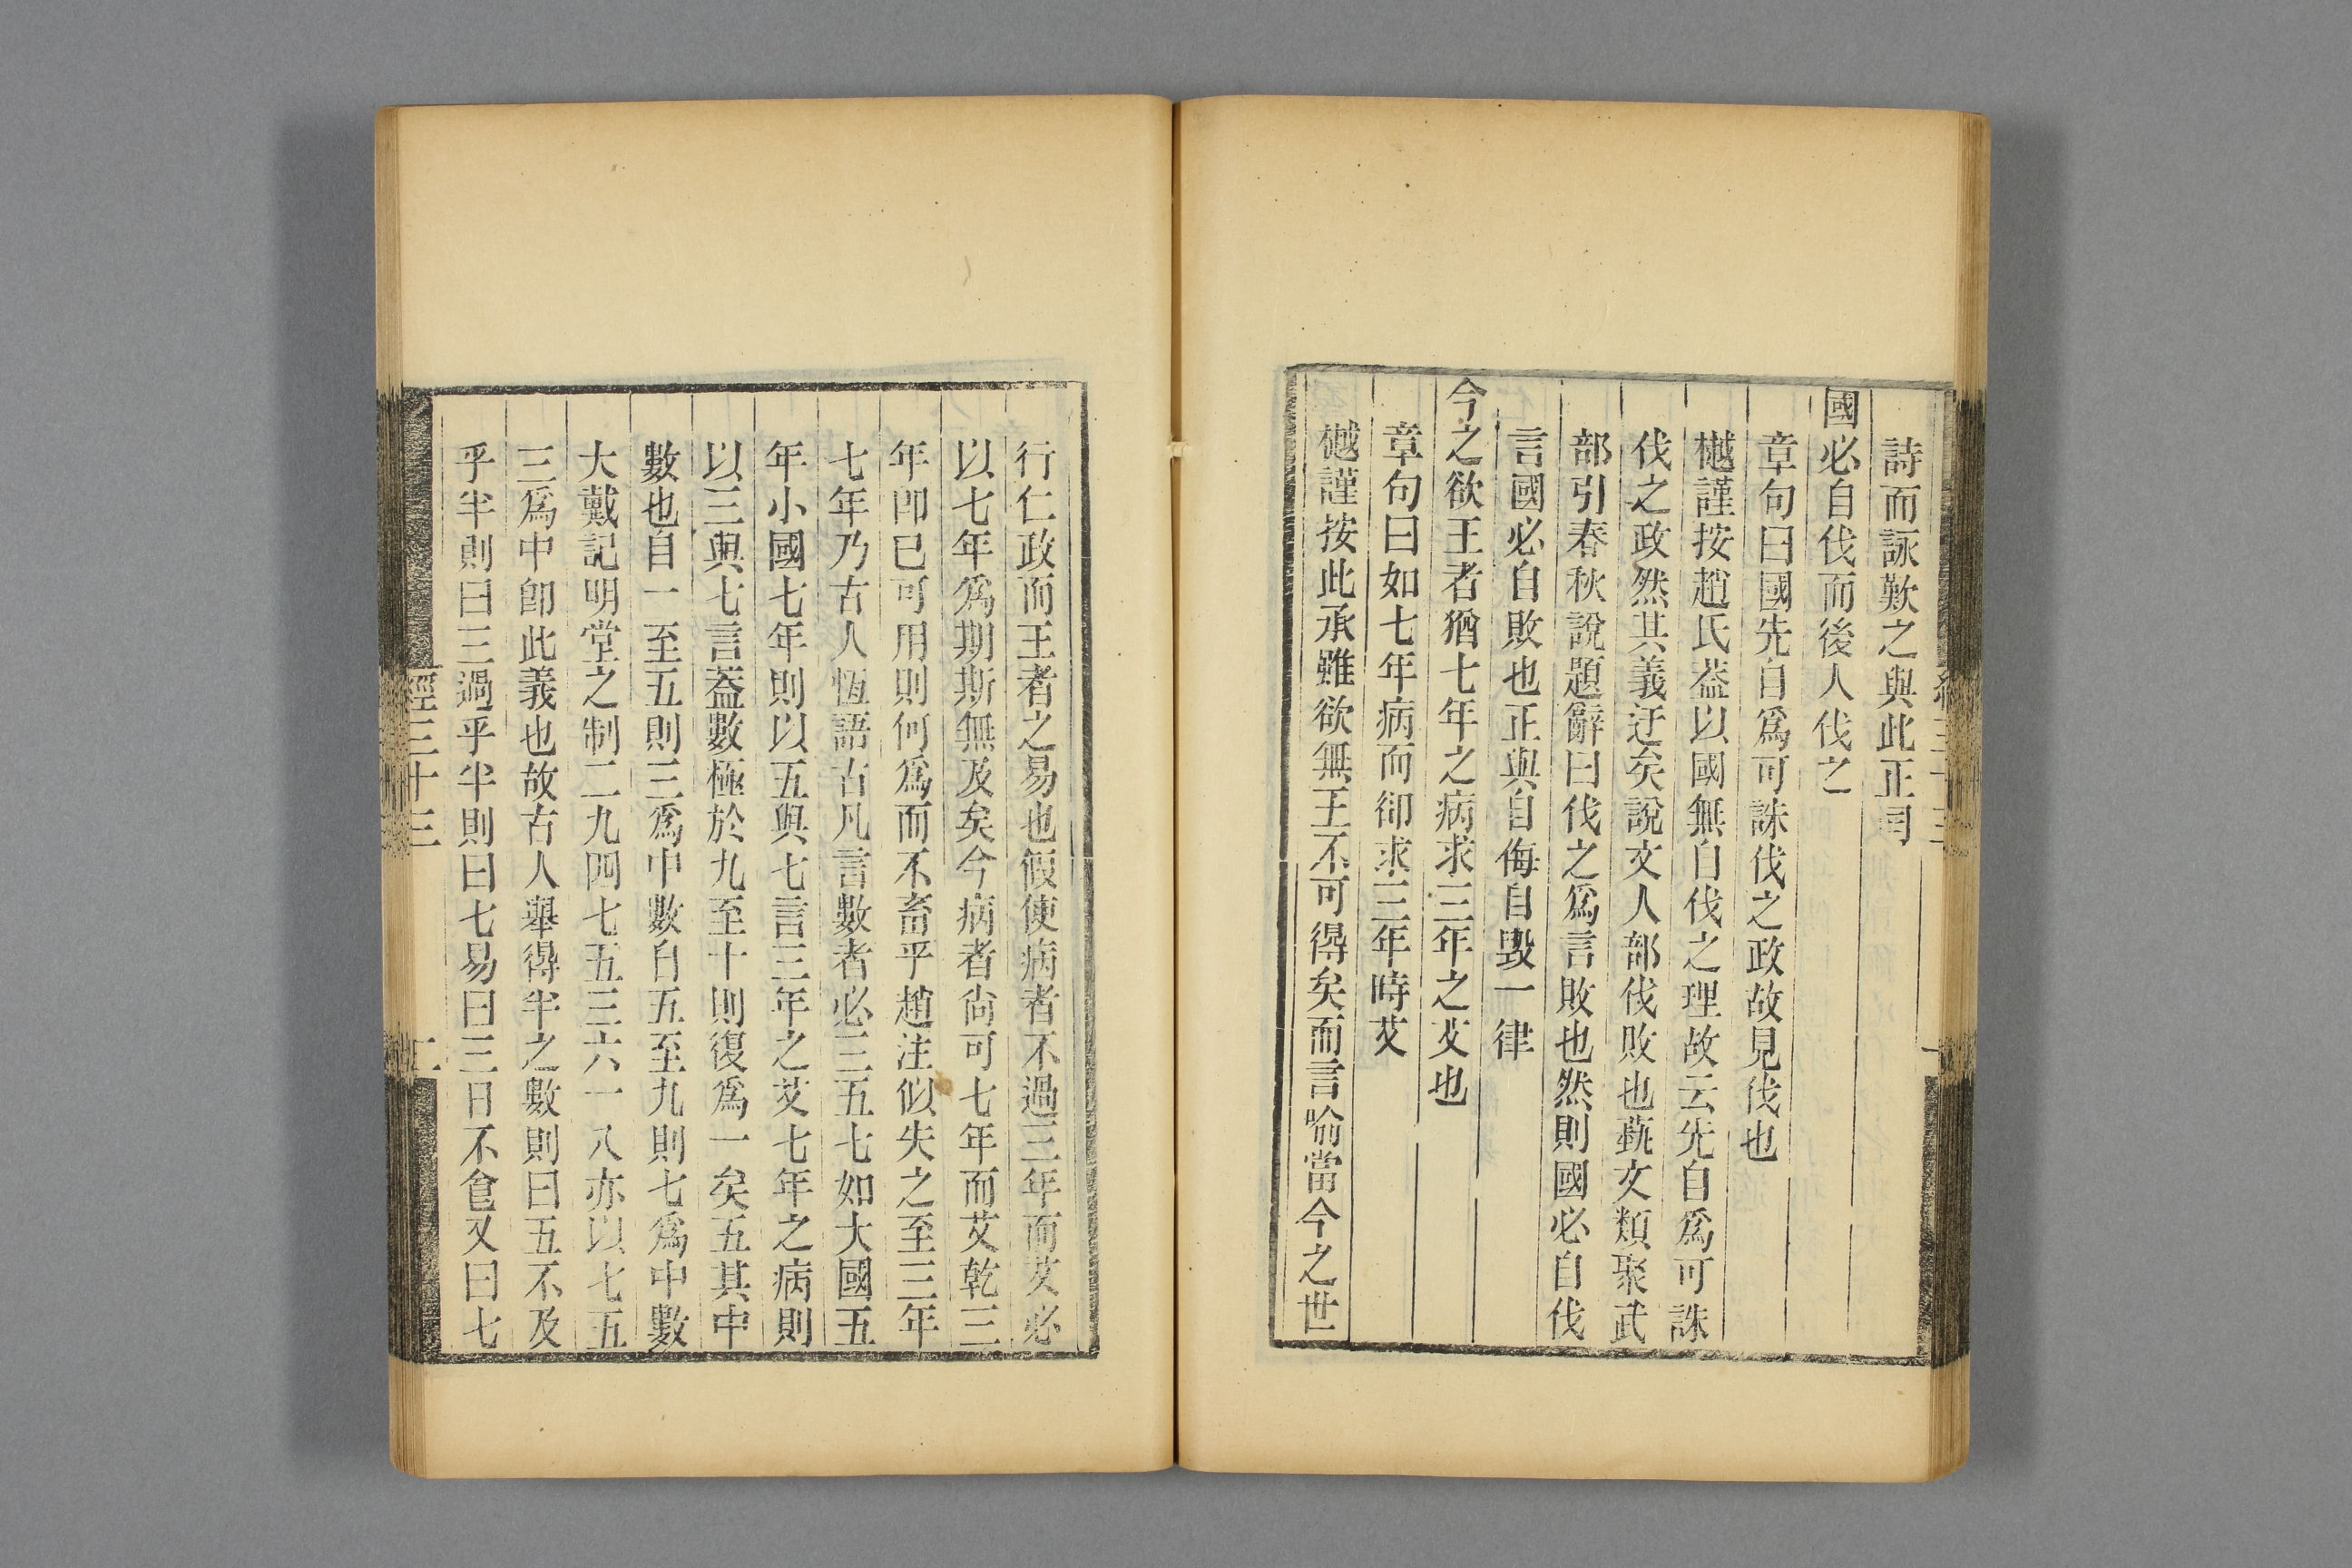 詩而詠歎之與此正同
國必自伐而後人伐之
章句曰國先自爲可誅伐之政故見伐也
樾謹按趙氏葢以國無自伐之理故云先自爲可誅
伐之政然其義迂矣說文人部伐敗也蓺文類聚武
部引春秋說題辭曰伐之爲言敗也然則國必自伐
言國必自敗也正與自侮自毀一律
今之欲王者猶七年之病求三年之艾也
章句曰如七年病而卻求三年時艾
樾謹按此承雖欲無王不可得矣而言喻當今之世
行仁政而王者之易也假使病者不過三年而艾必
以七年爲期斯無及矣今病者尙可七年而艾乾三
年卽已可用則何爲而不畜乎趙注似失之至三年
七年乃古人恆語古凡言數者必三五七如大國五
年小國七年則以五與七言三年之艾七年之病則
以三與七言葢數極於九至十則復爲一矣五其中
數也自一至五則三爲中數自五至九則七爲中數
大戴記明堂之制二九四七五三六一八亦以七五
三爲中卽此義也故古人舉得半之數則曰五不及
乎半則曰三過乎半則曰七易曰三日不食又曰七
經三十三